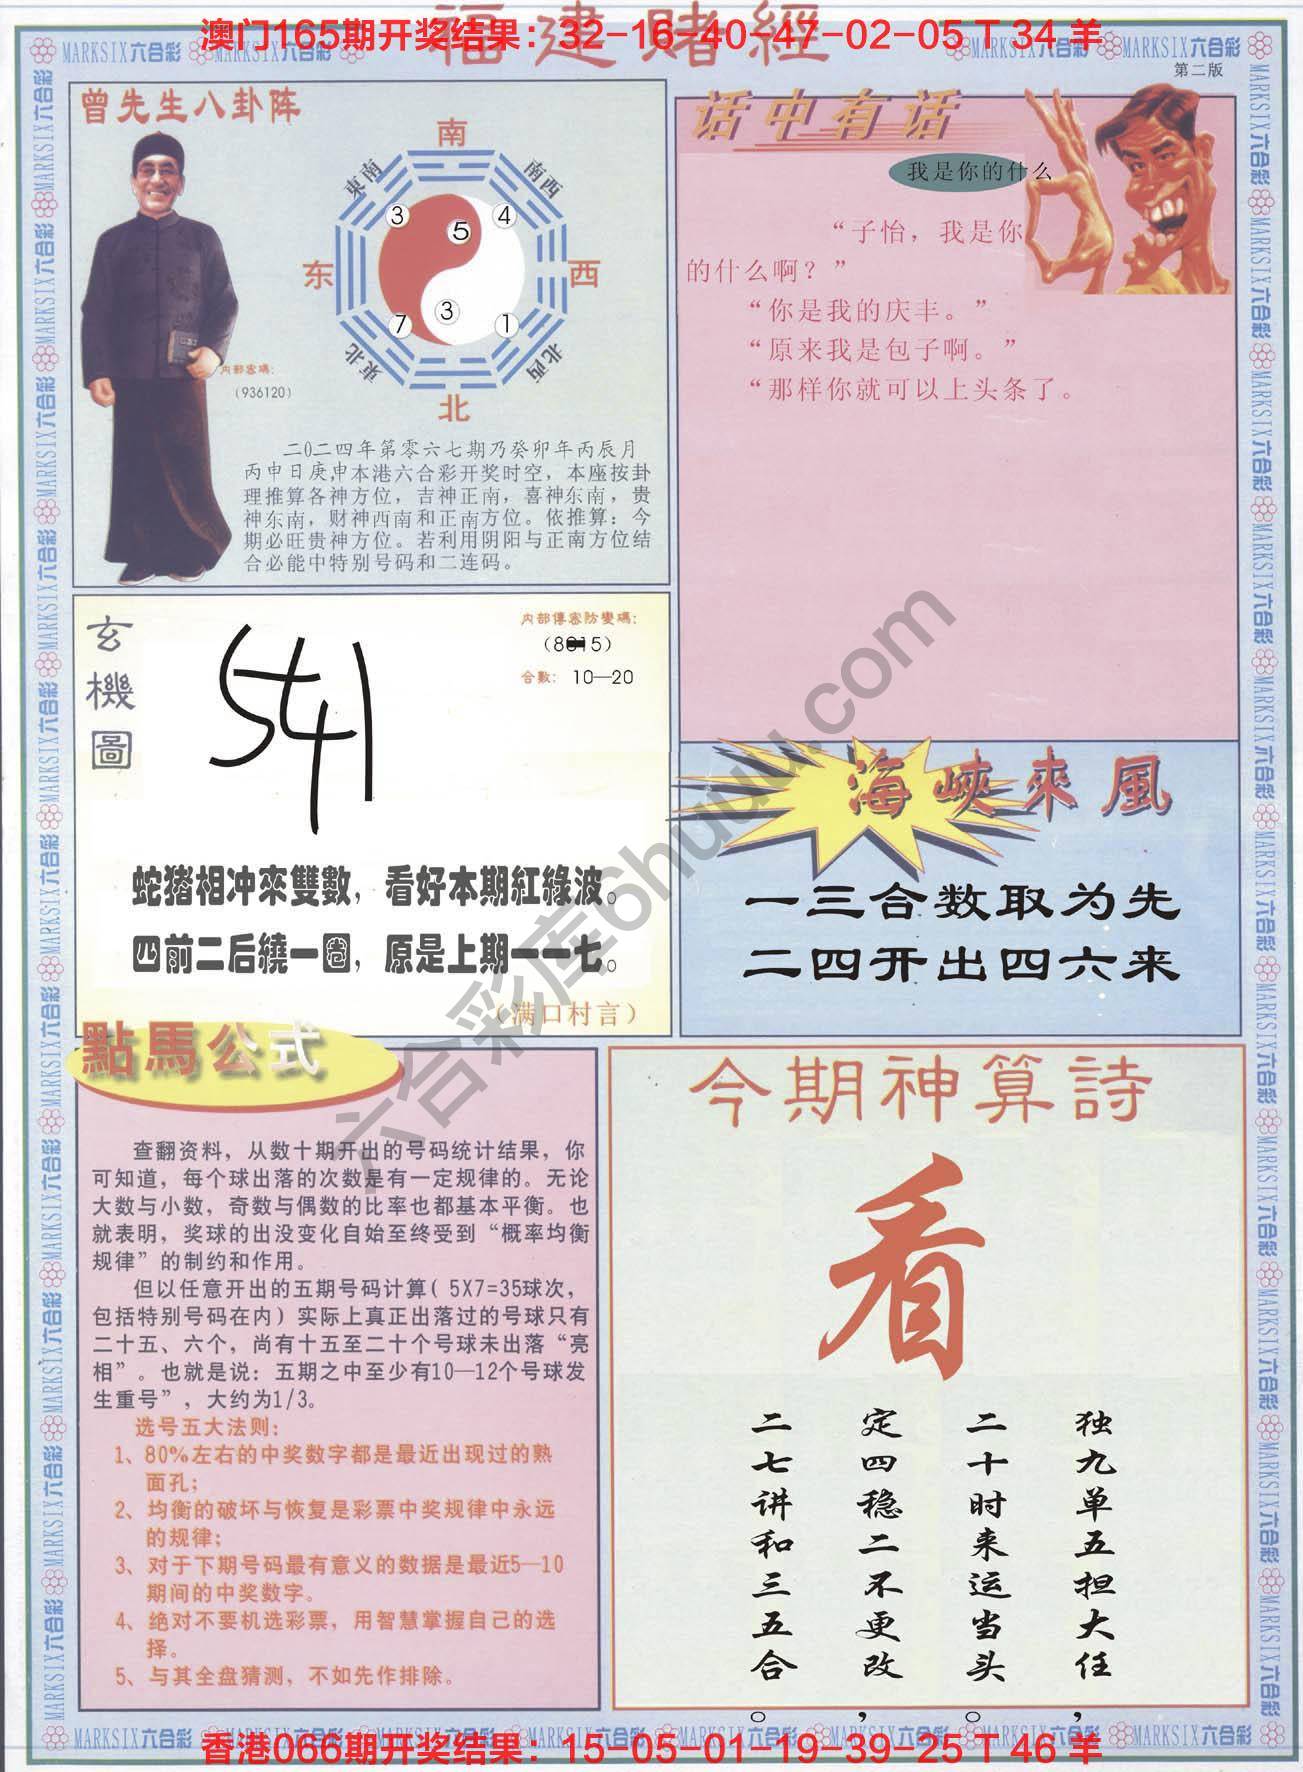 福建赌經
澳门165期开奖结果：32-16-40-47-02-05 T 34 羊
MARKSIX六合彩
第二版
曾先生八卦阵
南
東南
南西
3
5
4
东
西
3
7
1
东北
北西
北
内部密碼：
（936120）
二0二四年第零六七期乃癸卯年丙辰月
丙申日庚申本港六合彩开奖时空，本座按卦
理推算各神方位，吉神正南，喜神东南，贵
神东南，财神西南和正南方位。依推算：今
期必旺贵神方位。若利用阴阳与正南方位结
合必能中特别号码和二连码。
话中有话
我是你的什么
“子怡，我是你
的什么啊？”
“你是我的庆丰。”
“原来我是包子啊。”
“那样你就可以上头条了。
玄機圖
内部傳密防變碼：
合數： 10—20
541
蛇猪相冲來雙數，看好本期紅綠波。
四前二后繞一圈，原是上期一一七。
（满口村言）
海峽來風
一三合数取为先
二四开出四六来
點馬公式
查翻资料，从数十期开出的号码统计结果，你
可知道，每个球出落的次数是有一定规律的。无论
大数与小数，奇数与偶数的比率也都基本平衡。也
就表明，奖球的出没变化自始至终受到“概率均衡
规律”的制约和作用。
但以任意开出的五期号码计算（5X7=35球次，
包括特别号码在内）实际上真正出落过的号球只有
二十五、六个，尚有十五至二十个号球未出落“亮
相”。也就是说：五期之中至少有10—12个号球发
生重号”，大约为1/3。
选号五大法则：
1、80%左右的中奖数字都是最近出现过的熟
面孔；
2、均衡的破坏与恢复是彩票中奖规律中永远
的规律；
3、对于下期号码最有意义的数据是最近5—10
期间的中奖数字。
4、绝对不要机选彩票，用智慧掌握自己的选
择。
5、与其全盘猜测，不如先作排除。
今期神算詩
看
独九单五担大任，
二十时来运当头。
定四稳二不更改，
二七讲和三五合。
六合彩库6huuu.com
香港066期开奖结果：15-05-01-19-39-25 T 46 羊